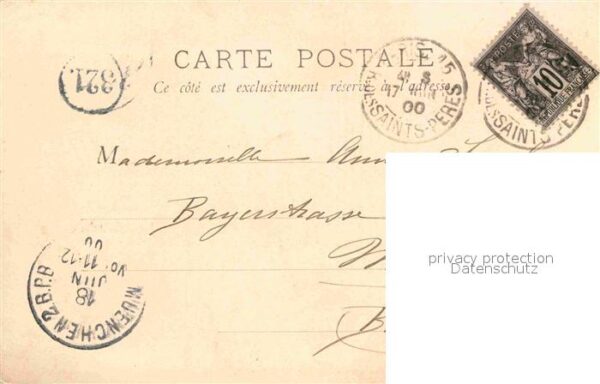 CARTE POSTALE
Ce côté est exclusivement réservé à l'adresse
321
PARIS 15
R. DES SAINTS-PÈRES
17 JUIN
00
10
R. DES SAINTS-PÈRES
Mademoiselle
Bayerstrasse
MUENCHEN 2 B.P.B
18
JUN
Vo 11-12
00
privacy protection
Datenschutz